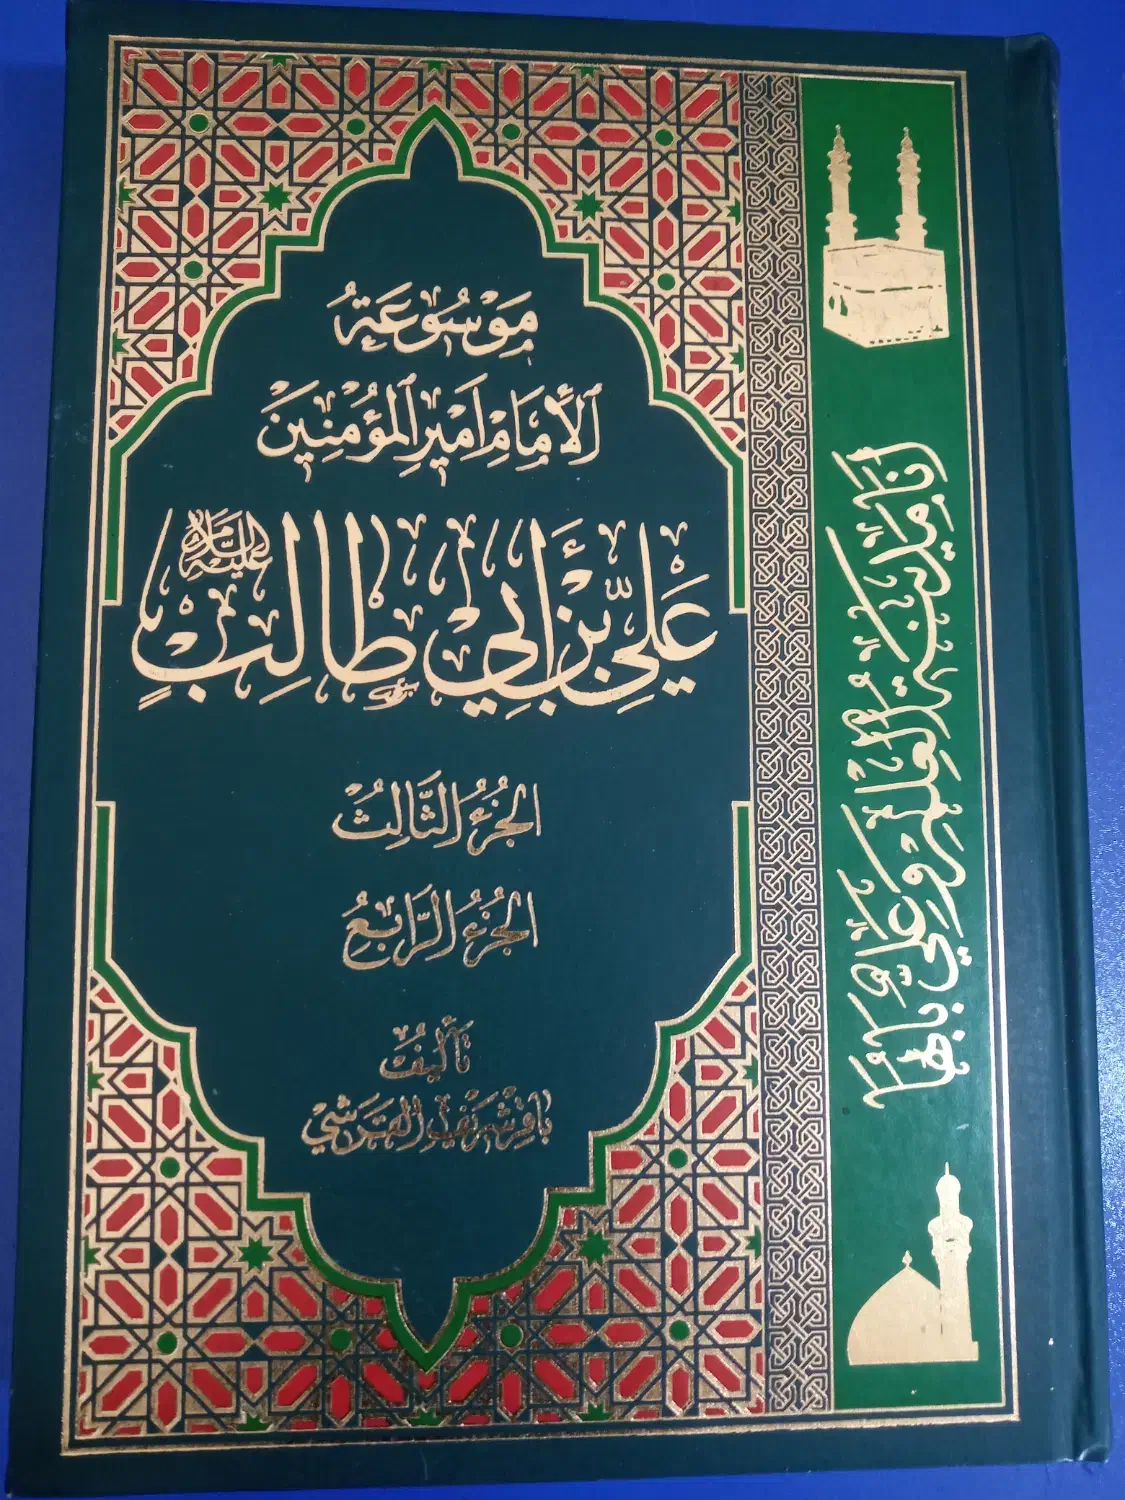 مَوْسُوعَةُ
الْإِمَامِ أَمِيرِ الْمُؤْمِنِينَ
عَلِيِّ بْنِ أَبِي طَالِبٍ عليه السلام
الجُزْءُ الثَّالِثُ
الجُزْءُ الرَّابِعُ
تَأليفُ
باقر شريف القرشي
أنا مدينة العلم وعلي بابها